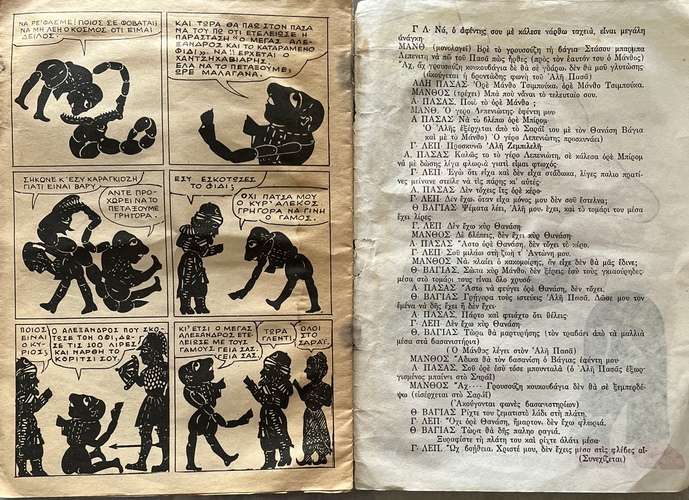 ΝΑ ΡΕ ΦΑΕΜΕ! ΠΟΙΟΣ ΣΕ ΦΟΒΑΤΑΙ
ΝΑ ΜΗ ΛΕΗ Ο ΚΟΣΜΟΣ ΟΤΙ ΕΙΜΑΙ
ΔΕΙΛΟΣ!
ΚΑΙ ΤΩΡΑ ΘΑ ΠΑΩ ΣΤΟΝ ΠΑΣΑ
ΝΑ ΤΟΥ ΠΩ ΟΤΙ ΕΤΕΛΕΙΩΣΕ Η
ΠΑΡΑΣΤΑΣΗ "Ο ΜΕΓΑΣ ΑΛΕ-
ΞΑΝΔΡΟΣ ΚΑΙ ΤΟ ΚΑΤΑΡΑΜΕΝΟ
ΦΙΔΙ"- ΝΑ!! ΕΡΧΕΤΑΙ Ο
ΧΑΝΤΖΗΧΑΒΙΑΡΗΣ,
ΕΛΑ ΝΑ ΤΟ ΠΕΤΑΞΟΥΜΕ,
ΩΡΕ ΜΑΛΑΓΑΝΑ.
ΣΗΚΩΝΕ Κ' ΕΣΥ ΚΑΡΑΓΚΙΟΖΗ
ΓΙΑΤΙ ΕΙΝΑΙ ΒΑΡΥ
ΑΝΤΕ ΠΡΟ-
ΧΩΡΕΙ ΝΑ ΤΟ
ΠΕΤΑΞΟΥΜΕ
ΓΡΗΓΟΡΑ.
ΕΣΥ ΕΣΚΟΤΩΣΕΣ
ΤΟ ΦΙΔΙ;
ΟΧΙ ΠΑΣΑ ΜΟΥ
Ο ΚΥΡ' ΑΛΕΚΟΣ.
ΓΡΗΓΟΡΑ ΝΑ ΓΙΝΗ
Ο ΓΑΜΟΣ.
ΠΟΙΟΣ
ΕΙΝΑΙ
Ο ΚΥ-
ΡΙΟΣ;
Ο ΑΛΕΞΑΝΔΡΟΣ ΠΟΥ ΣΚΟ-
ΤΩΣΕ ΤΟΝ ΟΦΙ, ΔΩ-
ΣΕ ΤΙΣ 100 ΛΙΡΕΣ
ΚΑΙ ΝΑΡΘΗ ΤΟ
ΚΟΡΙΤΣΙ ΣΟΥ
ΚΙ' ΕΤΣΙ Ο ΜΕΓΑΣ
ΑΛΕΞΑΝΔΡΟΣ ΕΤΕ
ΛΕΙΩΣΕ ΜΕ ΤΟΥΣ
ΓΑΜΟΥΣ. ΓΕΙΑ ΣΑΣ,
ΓΕΙΑ ΣΑΣ.
ΤΩΡΑ
ΓΛΕΝΤΙ.
ΟΛΟΙ
ΣΤΟ
ΣΑΡΑΪ.
Γ Λ· Νά, ὁ ἀφέντης σου μὲ κάλεσε νάρθω ταχειά, εἶναι μεγάλη
ἀνάγκη·
ΜΑΝΘ. (μονολογεῖ) Βρὲ τὸ γρουσούζη τὴ βάγια· Στάσου μπάρμπα
Λεπενιώτη νὰ πῶ τοῦ Πασᾶ πὼς ἦρθες (πρὸς τὸν ἑαυτόν του ὁ Μάνθος)
Ἄχ, ἄχ γρουσούζη κουκουβάγια δὲ θὰ σὲ γδάρω, δὲν θὰ μοῦ γλυτώσης
(ἀκούγεται ἡ βροντώδης φωνὴ τοῦ Ἀλῆ Πασᾶ)
ΑΛΗ ΠΑΣΑΣ Ὀρὲ Μάνθο Τσιμποῦκα, ὀρὲ Μάνθο Τσιμποῦκα.
ΜΑΝΘΟΣ (τρέχει) Μπὰ ποὺ νἆναι τὸ τελευταῖο σου.
Α· ΠΑΣΑΣ Ποιὸ τὸ ὀρὲ Μάνθο ;
ΜΑΝΘ. Ὁ γέρο Λεπενιώτης ἐφέντη μου·
Α ΠΑΣΑΣ Νὰ τὸ βλέπω ὀρὲ Μπίρομ
Ὁ Ἀλῆς ἐξέρχεται ἀπὸ τὸ Σαράϊ του μὲ τὸν Θανάση Βάγια
καὶ μὲ τὸ Μάνθο) (Ὁ γέρο Λεπενιώτης προσκυνάει)
Γ· ΛΕΠ Προσκυνῶ Ἀλῆ Ζεμπιλελῆ·
Α. ΠΑΣΑΣ Καλῶς το τὸ γέρο Λεπενιώτη, σὲ κάλεσα ὀρὲ Μπίρομ
νὰ μὲ δώσης λίγα φλουριὰ γιατὶ εἶμαι φτωχός·
Γ· ΛΕΠ· Ἐγὼ ὅτι εἶχα καὶ δὲν εἶχα στάδωκα, λίγες παλιο πρατί-
νες μείνανε στεῖλε νὰ τὶς πάρης κι' αὐτές·
Α. ΠΑΣΑΣ Δὲν τόχεις ἴτς ὀρὲ γέρο·
Γ· ΛΕΠ· Δὲν ἔχω, ὅταν εἶχα μόνος μου δὲν σοῦ ἔστελνα;
Θ ΒΑΓΙΑΣ Ψέματα λέει, Ἀλῆ μου, ἔχει, καὶ τὸ τομάρι του μέσα
ἔχει λίρες·
Γ. ΛΕΠ Δὲν ἔχω κὺρ Θανάση·
ΜΑΝΘΟΣ Δὲ βλέπεις, δὲν ἔχει κὺρ Θανάση·
Α· ΠΑΣΑΣ Ἄστο ὀρὲ Θανάση, δὲν τόχει τὸ γέρο.
Γ· ΛΕΠ· Σοῦ μιλάω στὴ ζωὴ τ' Ἀντώνη μου.
ΜΑΝΘΟΣ Νά, κλαίει ὁ κακομοίρης, ἂν εἶχε δὲν θὰ μᾶς ἔδινε;
Θ· ΒΑΓΙΑΣ, Σώπα κὺρ Μάνθο, δὲν ξέρεις ἐσὺ τοὺς γκιαούρηδες·
μέσα στὸ τομάρι τους εἶναι ὅλο χρυσό·
Α· ΠΑΣΑΣ Ἄστο νὰ φεύγει ὀρὲ Θανάση, δὲν τόχει.
Θ ΒΑΓΙΑΣ Γρήγορα τοὺς ἱστεύεις Ἀλῆ Πασᾶ. Δῶσε μου τον
ἐμένα νὰ δῆς ἔχει ἢ δὲν ἔχει·
Α ΠΑΣΑΣ Πάρτο καὶ φτιάχτο ὅτι θέλεις·
Γ· ΛΕΠ Δὲν ἔχω κὺρ Θανάση·
Θ· ΒΑΓΙΑΣ Τώρα θὰ μαρτυρήσης (τὸν τραβάει ἀπὸ τὰ μαλλιὰ
μέσα στὰ βασανιστήρια)
(Ὁ Μάνθος λέγει στὸν Ἀλῆ Πασᾶ)
ΜΑΝΘΟΣ Ἄδικα θὰ τὸν βασανίση ὁ Βάγιας ἐφέντη μου·
Α· ΠΑΣΑΣ Ὀρὲ ἐσὺ τόσε μπουνταλά (ὁ Ἀλῆ Πασᾶς ἐξορ-
γισμένος μπαίνει στὸ Σαράϊ)
ΜΑΝΘΟΣ Ἄχ.... Γρουσούζη κουκουβάγια δὲν θὰ σὲ ξεμπερδέ-
ψω (εἰσέρχεται στὸ Σαράϊ)
(Ἀκούγονται φωνὲς βασανιστηρίων)
Θ ΒΑΓΙΑΣ Ρίχτε του ζεματιστὸ λάδι στὴ πλάτη.
Γ· ΛΕΠ· Ὄχι ὀρὲ Θανάση, ἥμαρτον, δὲν ἔχω φλωριά.
Θ ΒΑΓΙΑΣ Τώρα θὰ δῆς παληο ραγιά.
Ξυραφίστε τὴ πλάτη του καὶ ρίχτε ἁλάτι μέσα·
Γ· ΛΕΠ Ὢχ βοήθεια, Χριστέ μου, δὲν ἔχεις μέσα στὶς φλέβες αἷ-
(Συνεχίζεται)